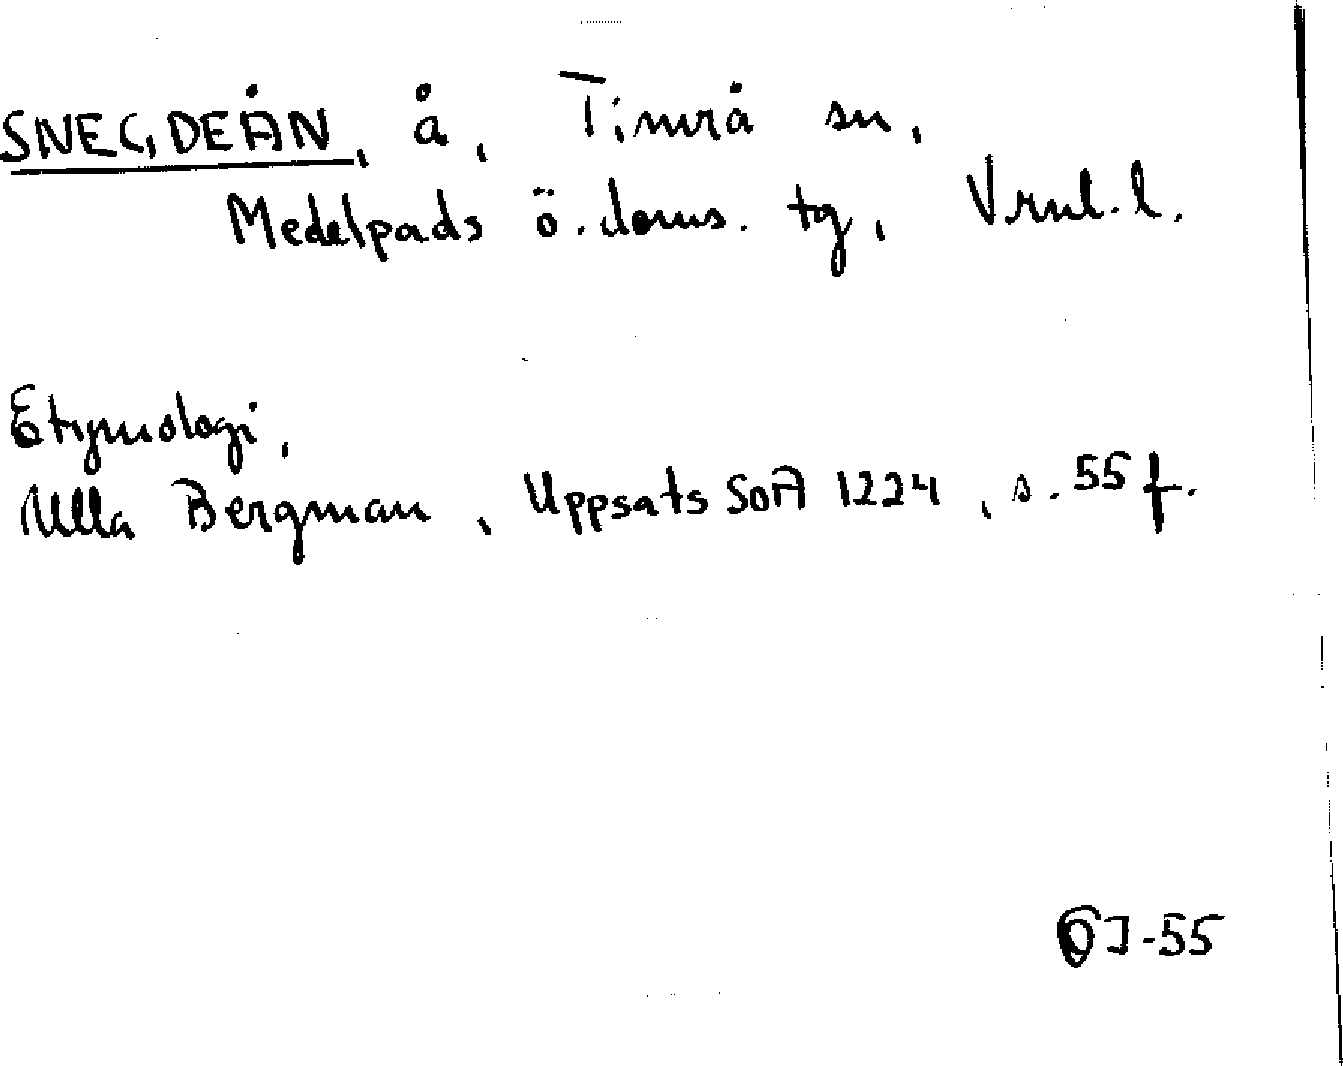 SNEGDEÅN, å, Timrå sn,
Medelpads ö. doms. tg, Vrnl. l.
Etymologi,
Ulla Bergman, Uppsats SOA 1224, s. 55 f.
OJ-55